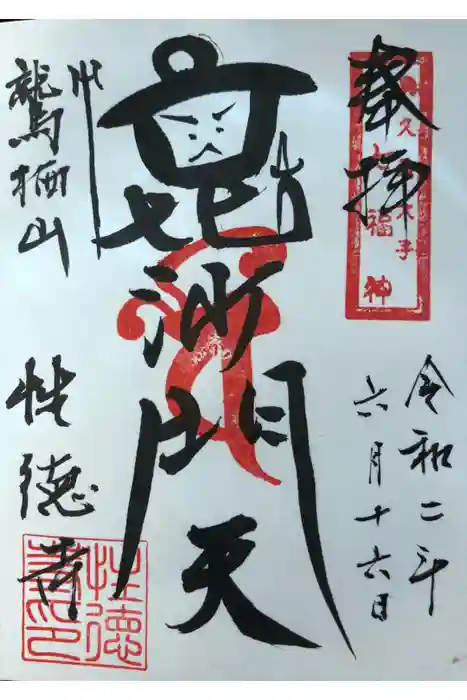 奉拝
久 七福神
令和二年
六月十六日
毘沙門天
鷲栖山
性德寺
性德